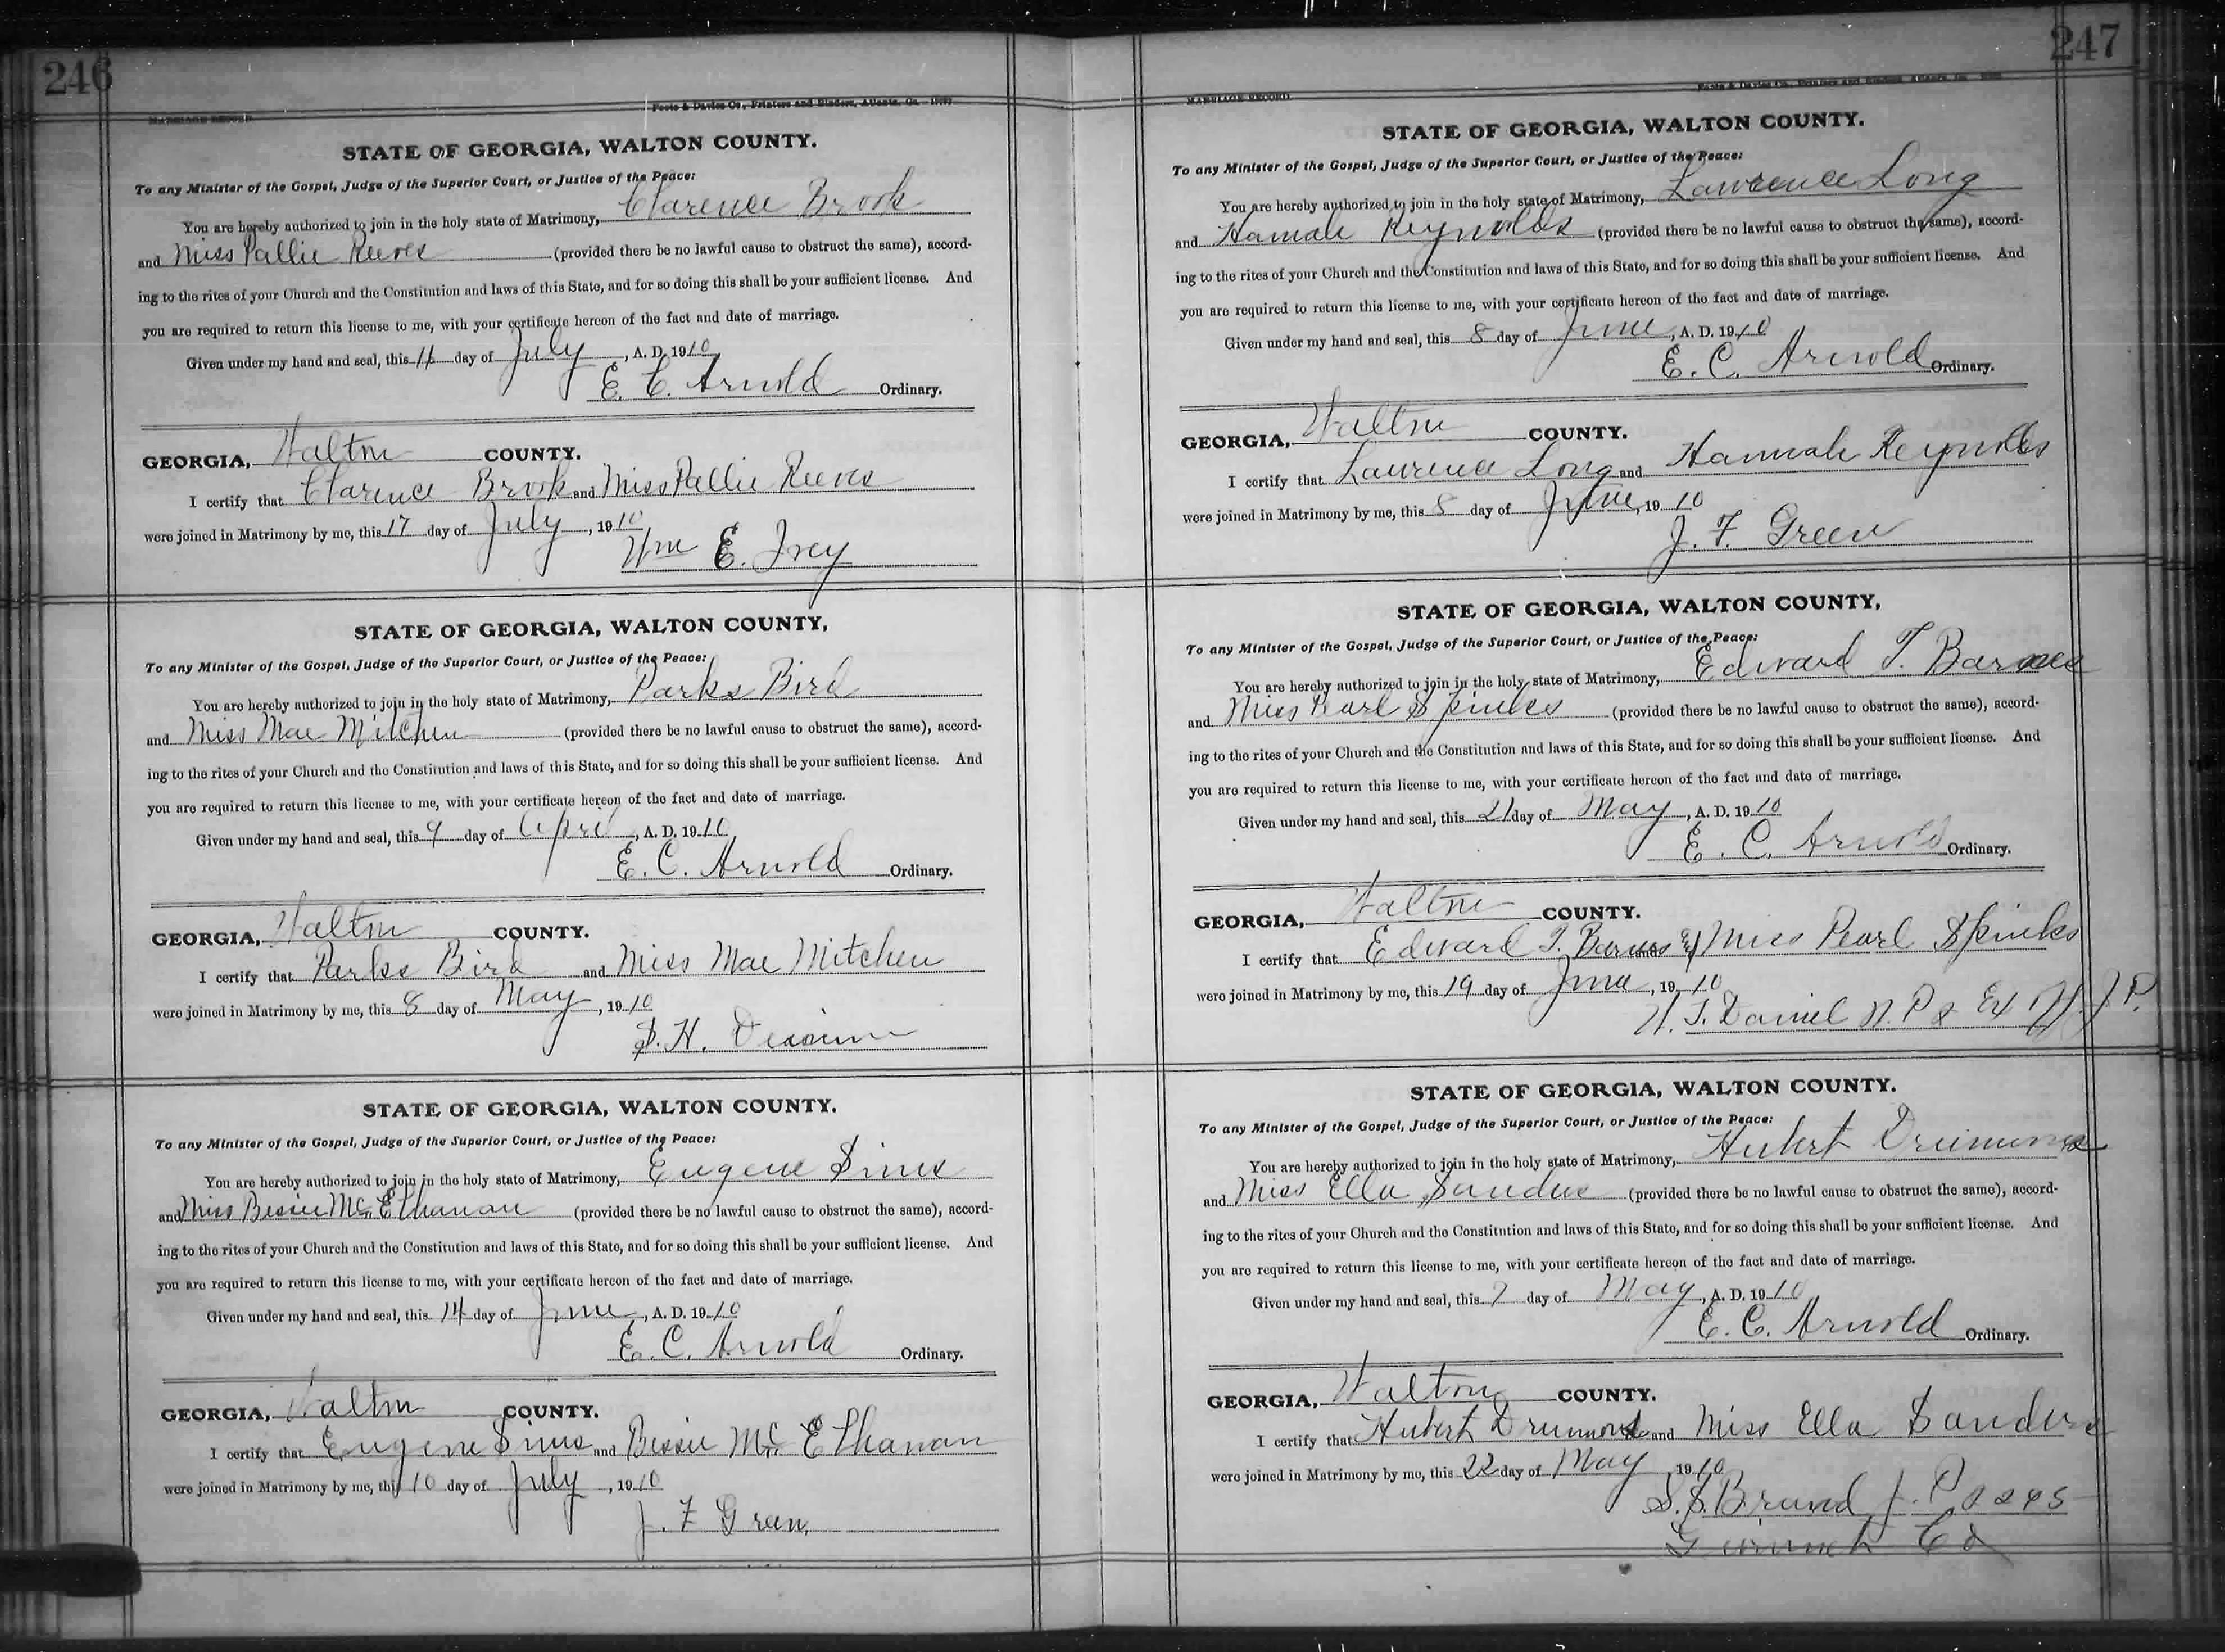 246
MARRIAGE RECORD
Foote & Davies Co., Printers and Binders, Atlanta, Ga.
STATE OF GEORGIA, WALTON COUNTY.
To any Minister of the Gospel, Judge of the Superior Court, or Justice of the Peace:
You are hereby authorized to join in the holy state of Matrimony, Clarence Brook
and Miss Pallie Reeves (provided there be no lawful cause to obstruct the same), accord-
ing to the rites of your Church and the Constitution and laws of this State, and for so doing this shall be your sufficient license. And
you are required to return this license to me, with your certificate hereon of the fact and date of marriage.
Given under my hand and seal, this day of July, A. D. 1910
E. C. Arnold Ordinary.
GEORGIA, Walton COUNTY.
I certify that Clarence Brook and Miss Pallie Reeves
were joined in Matrimony by me, this 17 day of July, 1910
Wm E. Ivey
STATE OF GEORGIA, WALTON COUNTY,
To any Minister of the Gospel, Judge of the Superior Court, or Justice of the Peace:
You are hereby authorized to join in the holy state of Matrimony, Parks Bird
and Miss Mae Mitchen (provided there be no lawful cause to obstruct the same), accord-
ing to the rites of your Church and the Constitution and laws of this State, and for so doing this shall be your sufficient license. And
you are required to return this license to me, with your certificate hereon of the fact and date of marriage.
Given under my hand and seal, this 9 day of April, A. D. 1910
E. C. Arnold Ordinary.
GEORGIA, Walton COUNTY.
I certify that Parks Bird and Miss Mae Mitchen
were joined in Matrimony by me, this 8 day of May, 1910
S. H.
STATE OF GEORGIA, WALTON COUNTY.
To any Minister of the Gospel, Judge of the Superior Court, or Justice of the Peace:
You are hereby authorized to join in the holy state of Matrimony, Eugene Sims
and Miss Bessie McElhanan (provided there be no lawful cause to obstruct the same), accord-
ing to the rites of your Church and the Constitution and laws of this State, and for so doing this shall be your sufficient license. And
you are required to return this license to me, with your certificate hereon of the fact and date of marriage.
Given under my hand and seal, this 14 day of June, A. D. 1910
E. C. Arnold Ordinary.
GEORGIA, Walton COUNTY.
I certify that Eugene Sims and Bessie McElhanan
were joined in Matrimony by me, this 10 day of July, 1910
J. F. Green
247
MARRIAGE RECORD
Foote & Davies Co., Printers and Binders, Atlanta, Ga.
STATE OF GEORGIA, WALTON COUNTY.
To any Minister of the Gospel, Judge of the Superior Court, or Justice of the Peace:
You are hereby authorized to join in the holy state of Matrimony, Lawrence Long
and Hannah Reynolds (provided there be no lawful cause to obstruct the same), accord-
ing to the rites of your Church and the Constitution and laws of this State, and for so doing this shall be your sufficient license. And
you are required to return this license to me, with your certificate hereon of the fact and date of marriage.
Given under my hand and seal, this 8 day of June, A. D. 1910
E. C. Arnold Ordinary.
GEORGIA, Walton COUNTY.
I certify that Laurence Long and Hannah Reynolds
were joined in Matrimony by me, this 8 day of June, 1910
J. F. Green
STATE OF GEORGIA, WALTON COUNTY,
To any Minister of the Gospel, Judge of the Superior Court, or Justice of the Peace:
You are hereby authorized to join in the holy state of Matrimony, Edward T. Barnes
and Miss Pearl Spinks (provided there be no lawful cause to obstruct the same), accord-
ing to the rites of your Church and the Constitution and laws of this State, and for so doing this shall be your sufficient license. And
you are required to return this license to me, with your certificate hereon of the fact and date of marriage.
Given under my hand and seal, this 21 day of May, A. D. 1910
E. C. Arnold Ordinary.
GEORGIA, Walton COUNTY.
I certify that Edward T. Barnes and Miss Pearl Spinks
were joined in Matrimony by me, this 19 day of June, 1910
T. Daniel N. P & Ex J. P.
STATE OF GEORGIA, WALTON COUNTY.
To any Minister of the Gospel, Judge of the Superior Court, or Justice of the Peace:
You are hereby authorized to join in the holy state of Matrimony, Hubert Drummond
and Miss Ella Sanders (provided there be no lawful cause to obstruct the same), accord-
ing to the rites of your Church and the Constitution and laws of this State, and for so doing this shall be your sufficient license. And
you are required to return this license to me, with your certificate hereon of the fact and date of marriage.
Given under my hand and seal, this 7 day of May, A. D. 1910
E. C. Arnold Ordinary.
GEORGIA, Walton COUNTY.
I certify that Hubert Drummond and Miss Ella Sanders
were joined in Matrimony by me, this 22 day of May, 1910
S. S. Brand J. P.